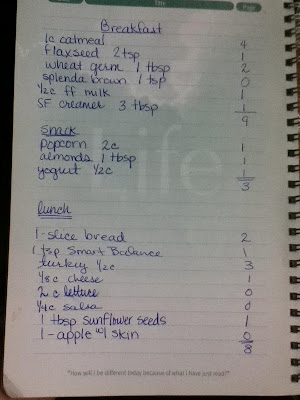 Title
Page
Breakfast
1c oatmeal 4
flaxseed 2tsp 1
wheat germ 1 tbsp 2
splenda brown 1 tsp 0
1/2c ff milk 1
SF creamer 3 tbsp 1
9
Snack
popcorn 2c 1
almonds 1 tbsp 1
yogurt 1/2c 1
3
Life
lunch
1-slice bread 2
1 tsp Smart Balance 1
turkey 1/2c 3
1/8c cheese 1
2 c lettuce 0
1/4c salsa 0
1 tbsp sunflower seeds 1
1-apple w/ skin 0
8
"How will I be different today because of what I have just read?"